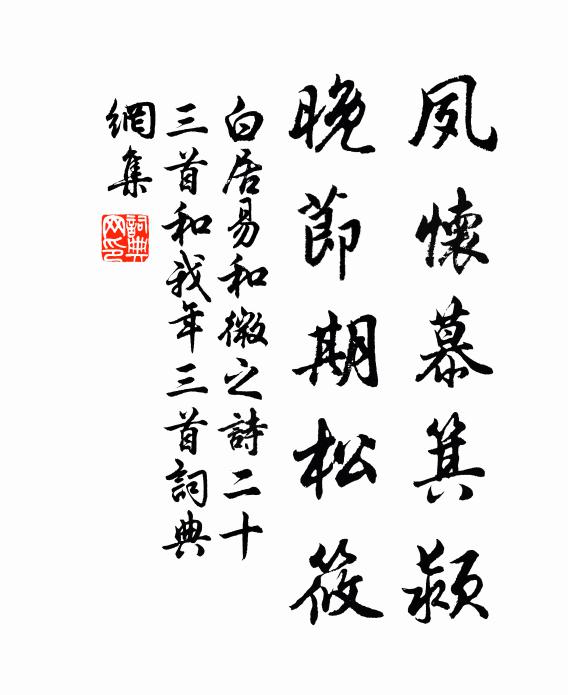 夙懷慕箕潁
晚節期松筱
白居易和微之詩二十
三首和我年三首詞典
網集
詞典
网印